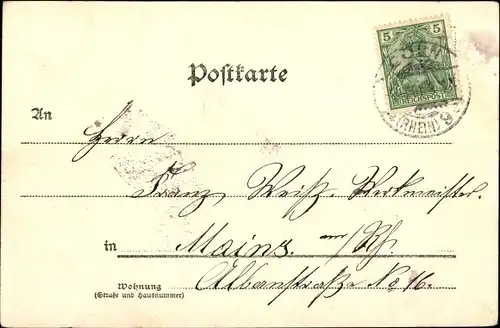 5
REICHSPOST
(RHEIN) 9
Postkarte
An
Herrn
Franz Weiß, Werkmeister.
in Mainz. am/Rh.
Wohnung
(Straße und Hausnummer)
Albanstraße No 16.